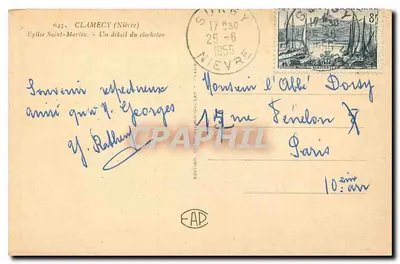 645. - CLAMECY (Nièvre)
Eglise Saint-Martin. - Un détail du clocheton
17 H 30
25-8
1955
NIEVRE
8F
Souvenir respectueux
ainsi qu'à M. Georges
Monsieur l'Abbé Dossy
rue Fénelon
Paris
10ème arr
CPAPHIL
EAP